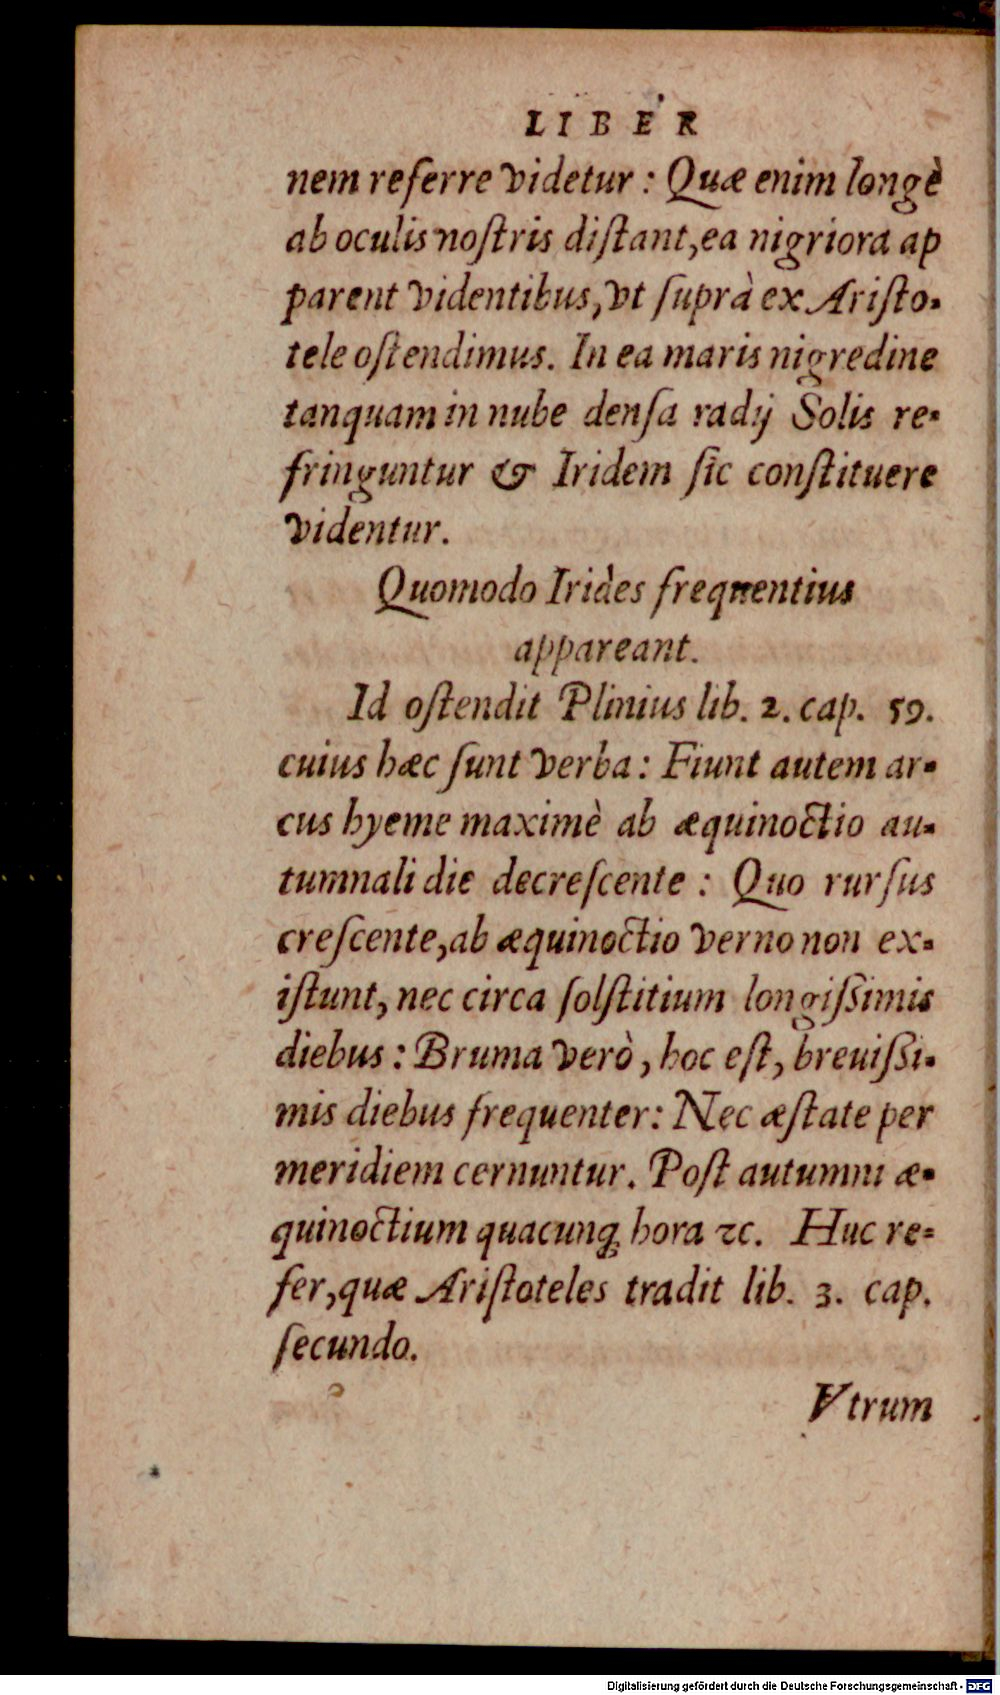 LIBER
nem referre videtur : Quæ enim longè
ab oculis noſtris diſtant, ea nigriora ap
parent videntibus, vt ſuprà ex Ariſto-
tele oſtendimus. In ea maris nigredine
tanquam in nube denſa radij Solis re-
fringuntur & Iridem ſic conſtituere
videntur.
Quomodo Irides frequentius
appareant.
Id oſtendit Plinius lib. 2. cap. 59.
cuius hæc ſunt verba : Fiunt autem ar-
cus hyeme maximè ab æquinoctio au-
tumnali die decreſcente : Quo rurſus
creſcente, ab æquinoctio verno non ex-
iſtunt, nec circa ſolſtitium longiſſimis
diebus : Bruma verò, hoc eſt, breuiſſi-
mis diebus frequenter: Nec æſtate per
meridiem cernuntur. Poſt autumni æ-
quinoctium quacunq; hora ⁊c. Huc re-
fer, quæ Ariſtoteles tradit lib. 3. cap.
ſecundo.
Vtrum
Digitalisierung gefördert durch die Deutsche Forschungsgemeinschaft - DFG